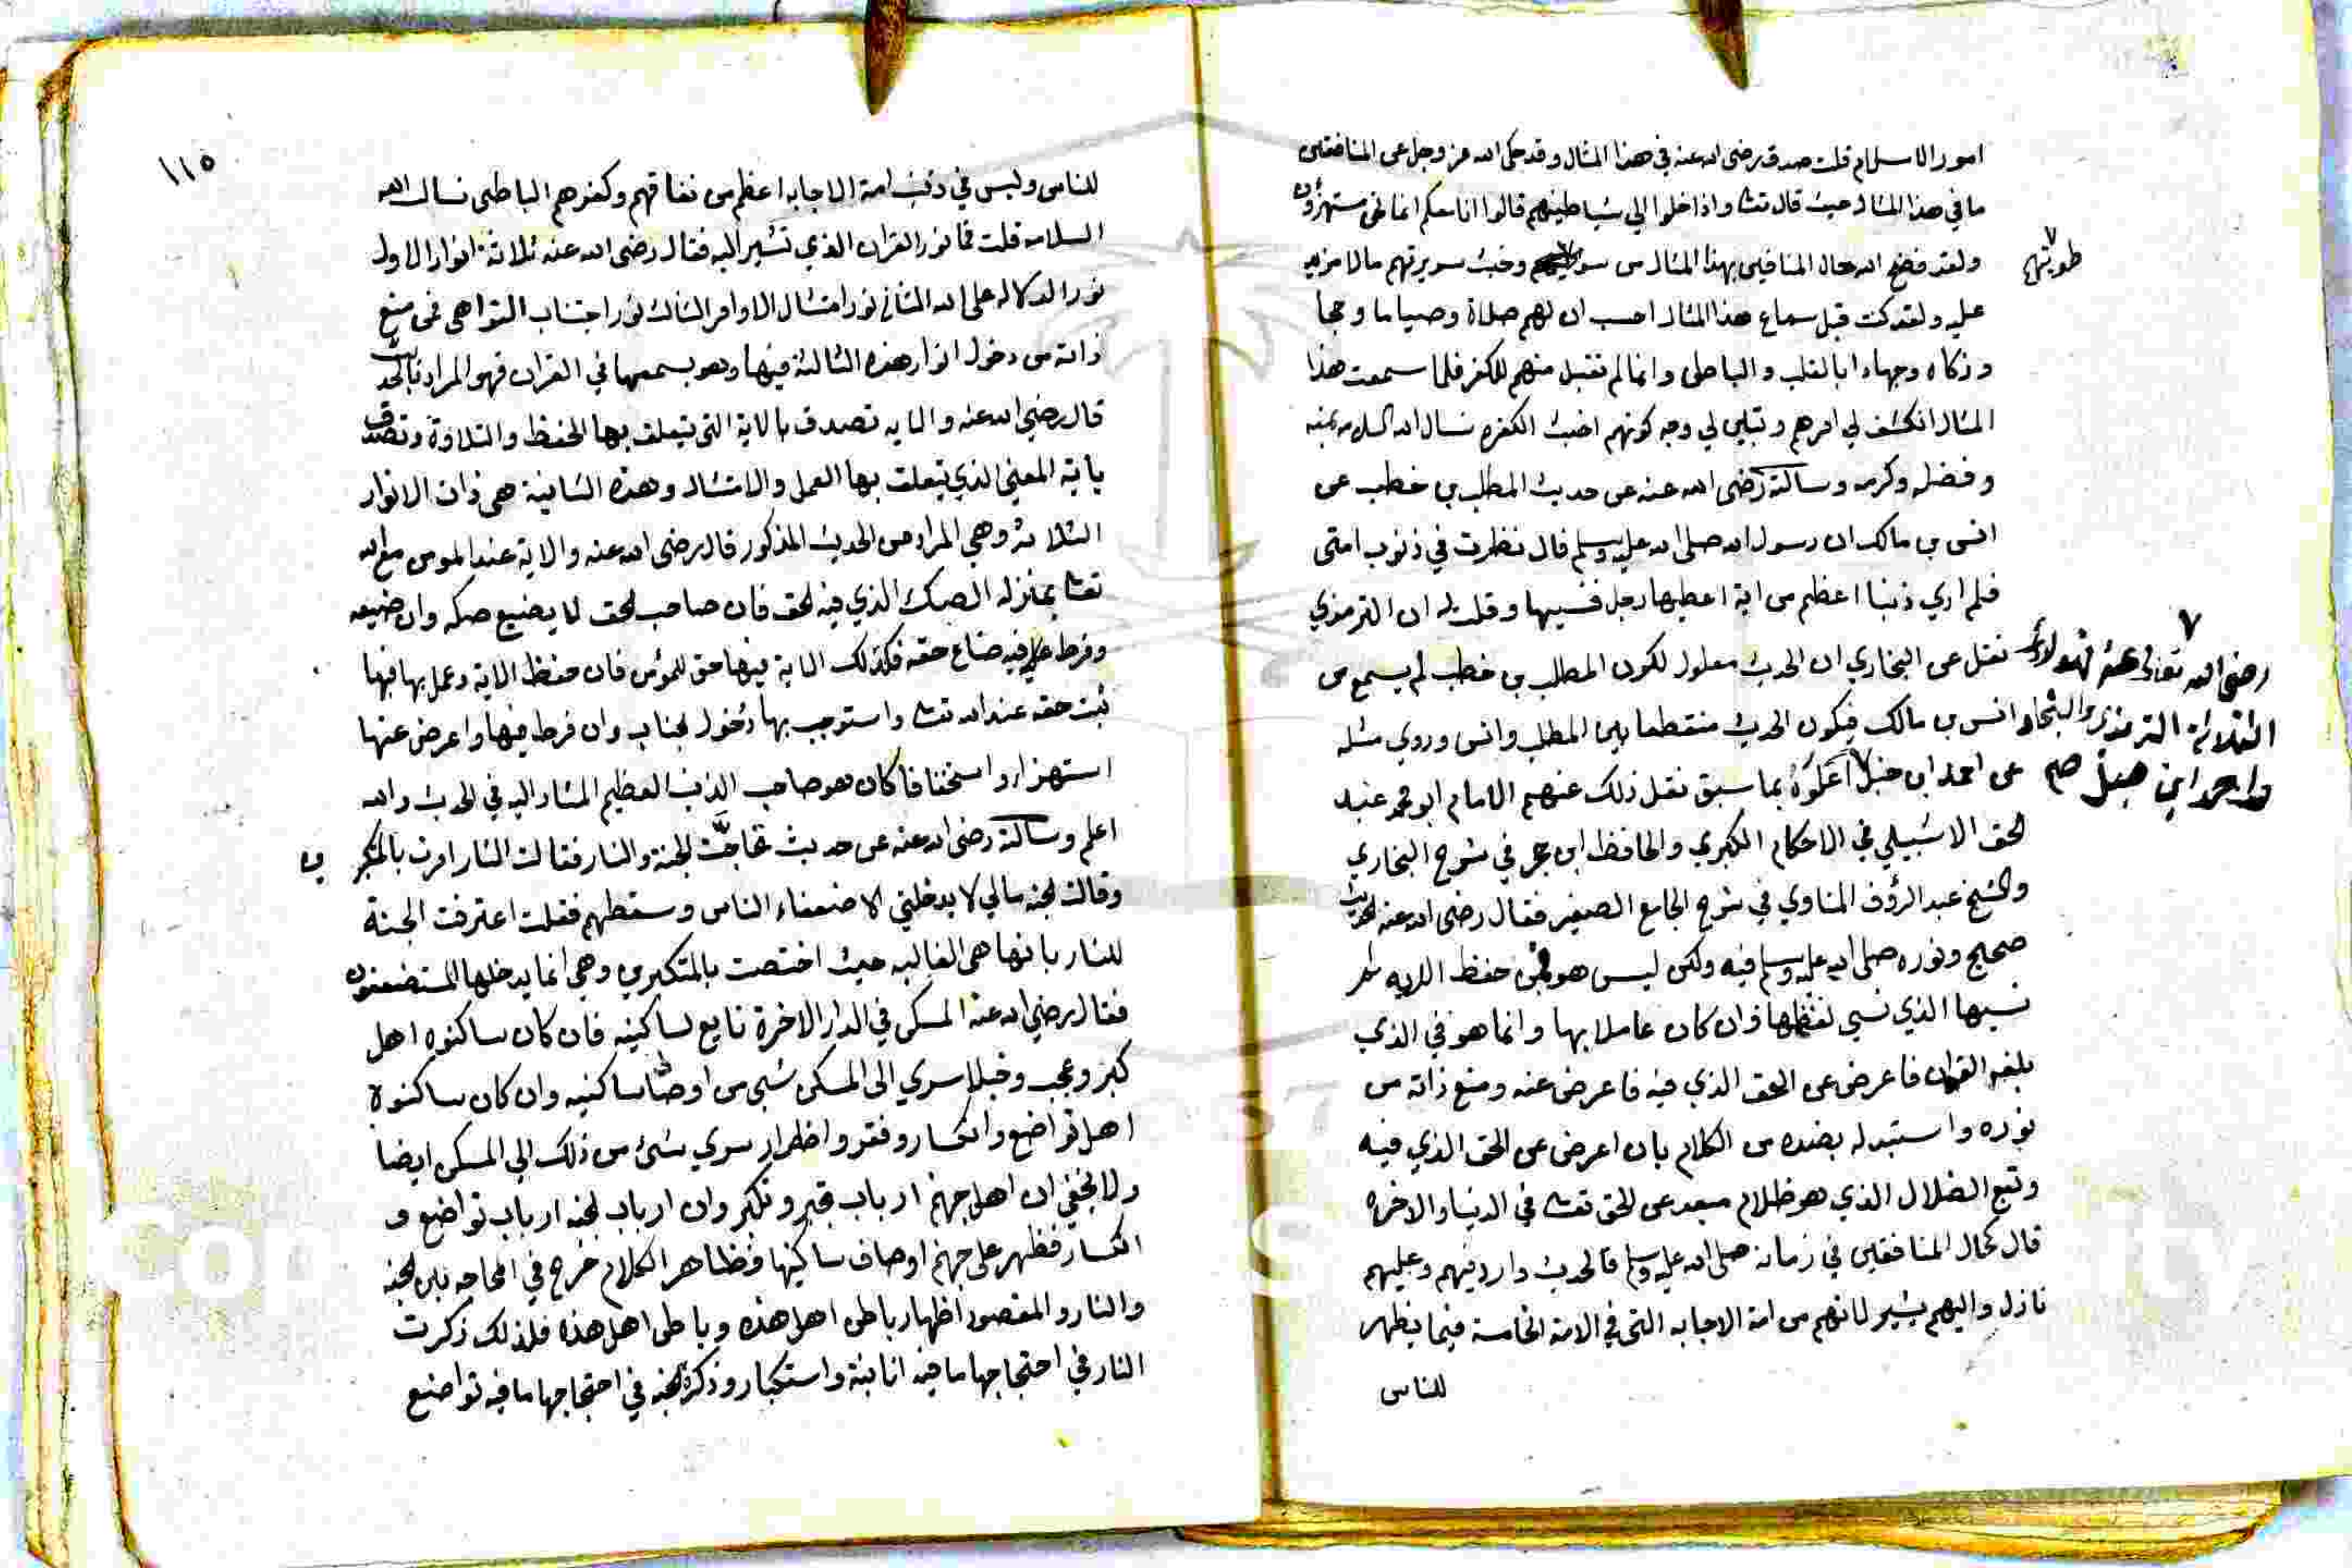 امور الاسلام قلت صدق رضي الله عنه في هذا المثال وقد حكى الله عز وجل عن المنافقين
ما في هذا المثال حيث قال تعا واذا خلوا الي شياطينهم قالوا انا معكم انما نحن مستهزؤن
ولقد فضح الله حال المنافقين بهذا المثال من سو وخبث سريرتهم مالا مزيد
طويتهم
عليه ولقد كنت قبل سماع هذا المثال احسب ان لهم صلاة وصياما وحجا
وزكاه وجهادا بالقلب والباطن وانما لم تقبل منهم للكفر فلما سمعت هذا
المثال انكشف لي امرهم وتبين لي وجه كونهم اخبث الكفره نسال الله السلامه بمنه
وفضله وكرمه وسالته رضي الله عنه عن حديث المطلب بن حطب عن
انس بن مالك ان رسول الله صلى الله عليه وسلم قال نظرت في ذنوب امتى
فلم اري ذنبا اعظم من اية اعطيها رجل فنسيها وقلت له ان الترمذي
نقل عن البخاري ان الحديث معلول لكون المطلب بن حطب لم يسمع من
انس بن مالك فيكون الحديث منقطعا بين المطلب وانس وروي مثله
عن احمد ابن حنبل اعلوه بما سبق نقل ذلك عنهم الامام ابو محمد عبد
رضي الله تعالى عنه فهولاء
الثلاثة الترمذي والبخاري
واحمد ابن حنبل صح
الحق الاشبيلي في الاحكام الكبري والحافظ ابن حجر في شرح البخاري
والشيخ عبد الرؤف المناوي في شرح الجامع الصغير فقال رضي الله عنه الحديث
صحيح ونوره صلى الله عليه وسلم فيه ولكن ليس هو فمن حفظ الايه ثم
نسيها الذي نسي لفظها وان كان عاملا بها وانما هو في الذي
بلغه القران فاعرض عن الحق الذي فيه فاعرض عنه ومنع ذاته من
نوره واستبدله بضده من الكلام بان اعرض عن الحق الذي فيه
وتبع الضلال الذي هو ظلام مبعد عن الحق تعا في الدنيا والاخره
قال كحال المنافقين في زمانه صلى الله عليه وسلم فالحديث وارد فيهم وعليهم
نازل واليهم يشير لانهم من امة الاجابه التي في الامة الخاصة فيما يظهر
للناس
١١٥
للناس وليس في ذنب امة الاجابه اعظم من نفاقهم وكفرهم الباطن نسال الله
السلامه قلت فما نور القران الذي تشير اليه فقال رضي الله عنه ثلاثة انوار الاول
نور الدلاله على الله الثاني نور امتثال الاوامر الثالث نور اجتناب النواهي فمن منع
ذاته من دخول انوار هذه الثالثة فيها وهو يسمعها في القران فهو المراد بالحديث
قال رضي الله عنه والايه تصدق بالاية التي يتعلق بها الحفظ والتلاوة وتصدق
باية المعني الذي يتعلق بها العمل والامتثال وهذه الثانية هي ذات الانوار
الثلاثة وهي المراد من الحديث المذكور قال رضي الله عنه والاية عند المومن مع الله
تعا بمنزلة الصك الذي فيه الحق فان صاحب الحق لا يضيع صكه وان ضيعه
وفرط فيه ضاع حقه فكذلك الاية فيها حق للمؤمن فان حفظ الاية وعمل بها فيها
ثبت حقه عند الله تعا واستوجب بها دخول جنابه وان فرط فيها واعرض عنها
استهزاء واستخفافا كان هو صاحب الذنب العظيم المشار اليه في الحديث والله
اعلم وسالته رضي الله عنه عن حديث تحاجت الجنة والنار فقالت النار اوثرت بالمتكبر ين
وقالت الجنة مالي لا يدخلني الا ضعفاء الناس وسقطهم فقلت اعترفت الجنة
للنار بانها هي الغالبه حيث اختصت بالمتكبرين وهي انما يدخلها المستضعفون
فقال رضي الله عنه المسكن في الدار الاخرة تابع لساكنيه فان كان ساكنوه اهل
كبر وعجب وخيلا سري الى المسكن شيء من اوصاف ساكنيه وان كان ساكنوه
اهل تواضع وانكسار وفقر واضطرار سري شئ من ذلك الي المسكن ايضا
ولا يخفي ان اهل جهنم ارباب تجبر وتكبر وان ارباب الجنه ارباب تواضع و
انكسار فظهر على جهنم اوصاف ساكنيها فظاهر الكلام خرج في المحاجه بين الجنه
والنار والمقصود اظهار باطن اهل هذه وباطن اهل هذه فلذلك ذكرت
النار في احتجاجها ما فيه انانية واستكبار وذكرة الجنه في احتجاجها ما فيه تواضع